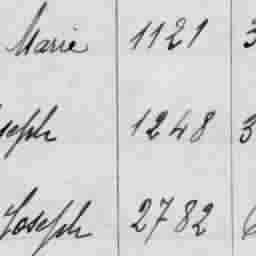 Marie 1121 3
seph 1248 3
Joseph 2782